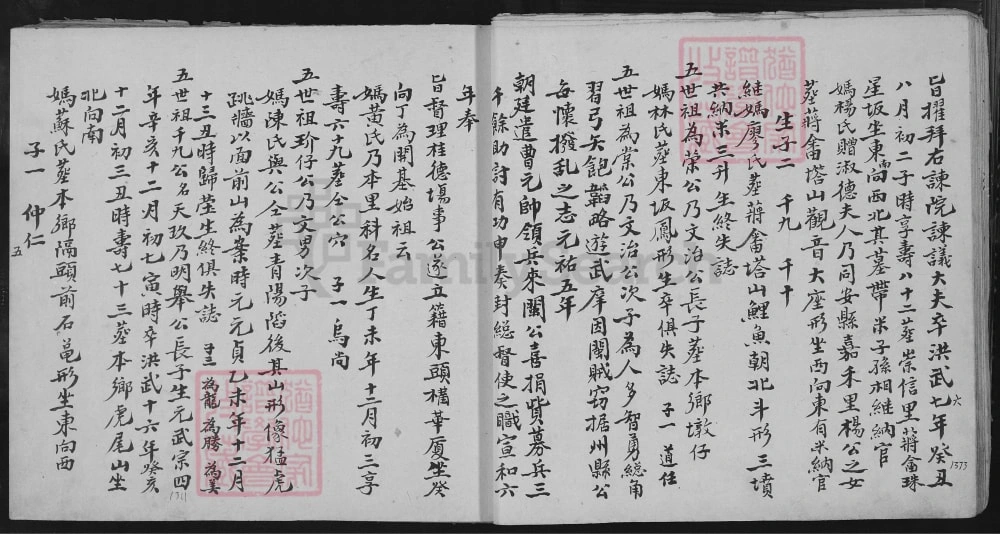 旨擢拜右諫院諫議大夫卒洪武七年癸丑
六
1373
八月初二子時享壽八十二塟崇信里蔣畲珠
星坂坐東南向西北其墓帶米子孫相継納官
媽楊氏贈淑德夫人乃同安縣嘉禾里楊公之女
塟蔣畲塔山觀音大座形坐西向東有米納官
生子二 千九 千十
継媽廖氏塟蔣畲塔山鯉魚朝北斗形 三墳
共納米三升生終失誌
五世祖為榮公乃文治公長子塟本鄉墩仔
媽林氏塟東坂鳳形生卒俱失誌 子一 道任
五世祖為棠公乃文治公次子為人多智勇総角
習弓矢飽韜略遊武庠因閩賊窃据州縣公
每懷撥乱之志元祐五年
朝廷遣曹元帥領兵來閩公喜捐貲募兵三
千餘助討有功申奏封総督使之職宣和六
年奉
旨督理桂德塲事公遂立籍東頭構華厦坐癸
向丁為開基始祖云
媽黃氏乃本里科名人生丁未年十二月初三享
壽六十九塟仝公穴 子一 烏尚
五世祖玠仔公乃文男次子
媽陳氏與公仝塟青陽滔後其山形像猛虎
跳墻以面前山為案時元元貞乙未年十二月
十三丑時歸塋生終俱失誌 子三 為龍 為勝 為美
五世祖千九公名天玖乃明舉公長子生元武宗四
年辛亥十二月初七寅時卒洪武十六年癸亥
1311
十二月初三丑時壽七十三塟本鄉虎尾山坐
北向南
媽蘇氏塟本鄉隔頭前石黽形坐東向西
子一 仲仁
五
FamilySearch